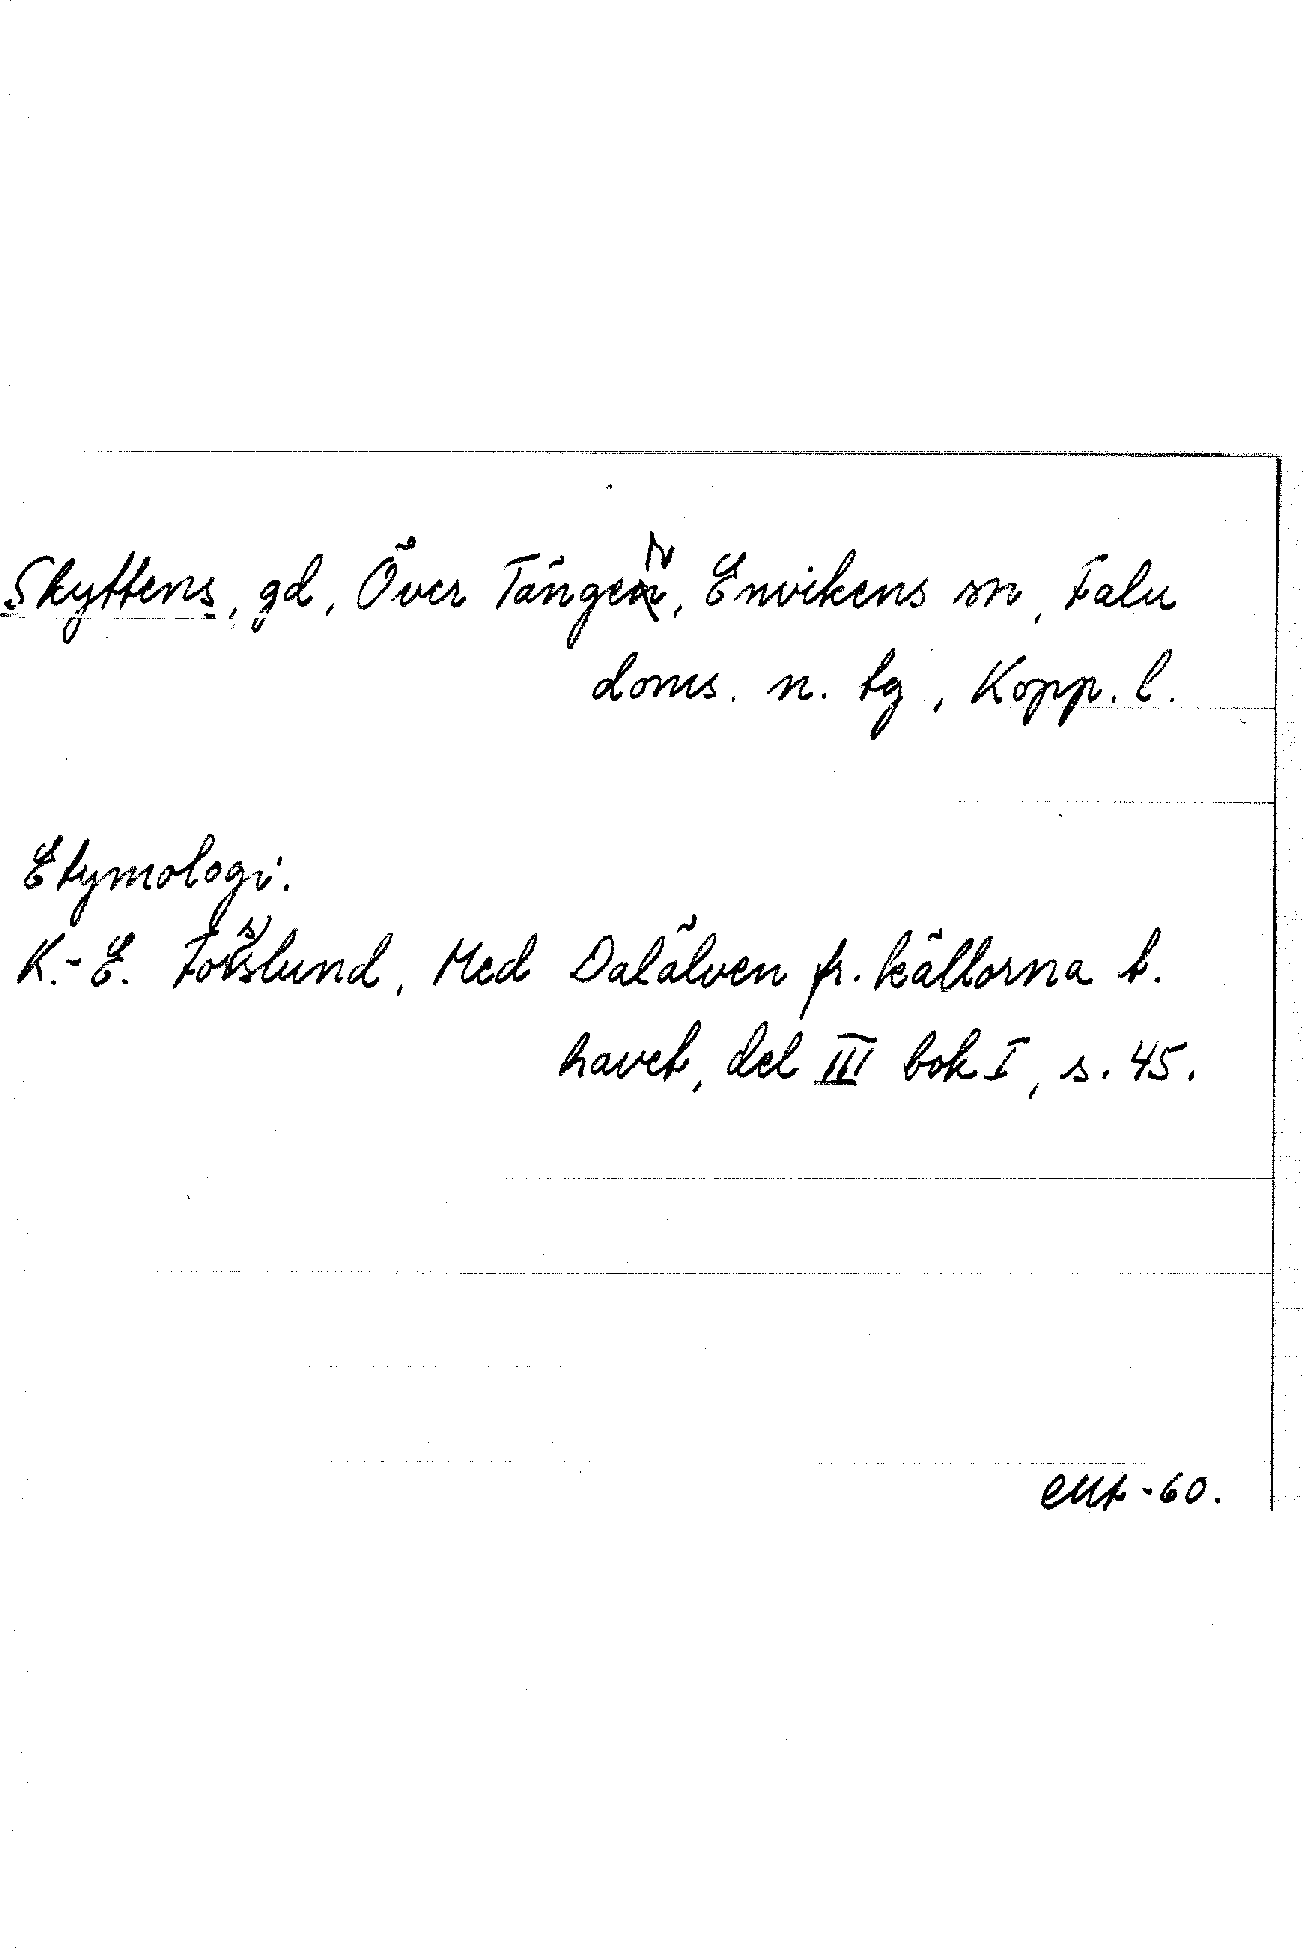 Skyttens, gd, Över Tänger, Envikens sn, Falu
doms. n. tg, Kopp. l.
Etymologi.
K.-E. Forsslund, Med Dalälven fr. källorna t.
havet, del III bok I, s. 45.
EMt-60.